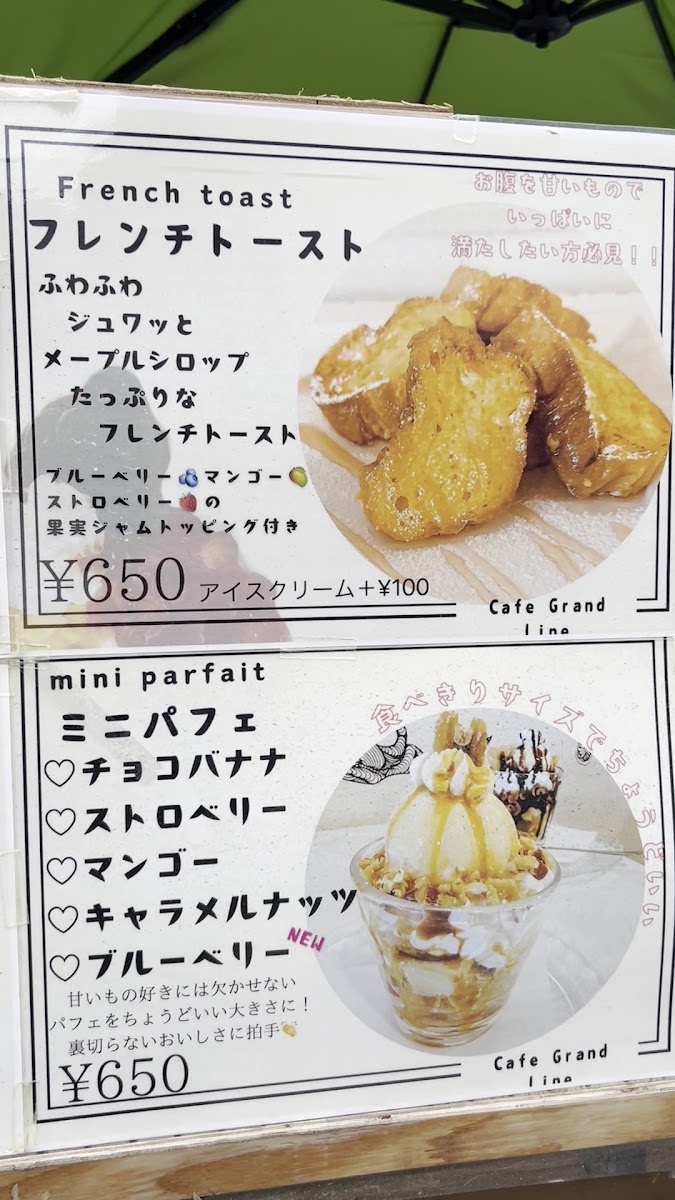 French toast
フレンチトースト
お腹を甘いもので
いっぱいに
満たしたい方必見！！
ふわふわ
ジュワッと
メープルシロップ
たっぷりな
フレンチトースト
ブルーベリー🫐マンゴー🥭
ストロベリー🍓の
果実ジャムトッピング付き
¥650 アイスクリーム＋¥100
Cafe Grand
Line
mini parfait
ミニパフェ
食べきりサイズでちょうどいい
♡チョコバナナ
♡ストロベリー
♡マンゴー
♡キャラメルナッツ
♡ブルーベリー
NEW
甘いもの好きには欠かせない
パフェをちょうどいい大きさに！
裏切らないおいしさに拍手👏
¥650
Cafe Grand
Line